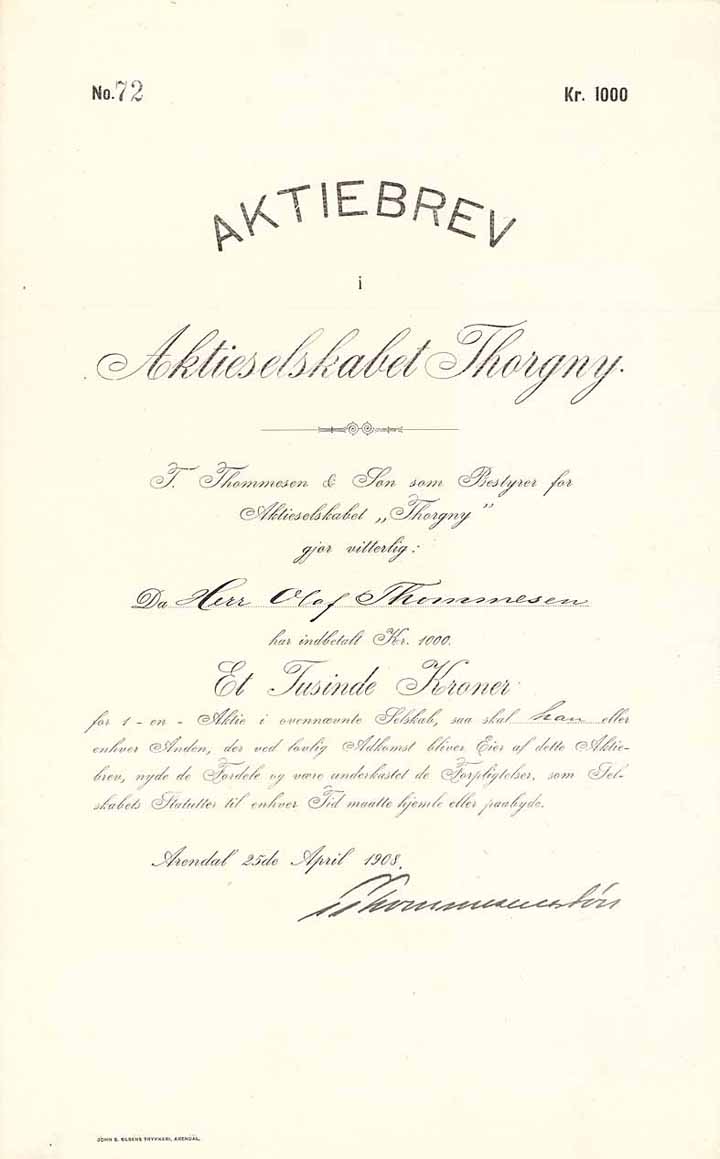 No. 72
Kr. 1000
AKTIEBREV
i
Aktieselskabet Thorgny.
T. Thommesen & Søn som Bestyrer for
Aktieselskabet „Thorgny”
gjør vitterlig:
Da Herr Olaf Thommesen
har indbetalt Kr. 1000.
Et Tusinde Kroner
for 1 - en - Aktie i ovennævnte Selskab, saa skal han eller
enhver Anden, der ved lovlig Adkomst bliver Eier af dette Aktie-
brev, nyde de Fordele og være underkastet de Forpligtelser, som Sel-
skabets Statutter til enhver Tid maatte hjemle eller paabyde.
Arendal 25de April 1908.
T Thommesen & Søn
JOHN S. OLSENS TRYKKERI, ARENDAL.